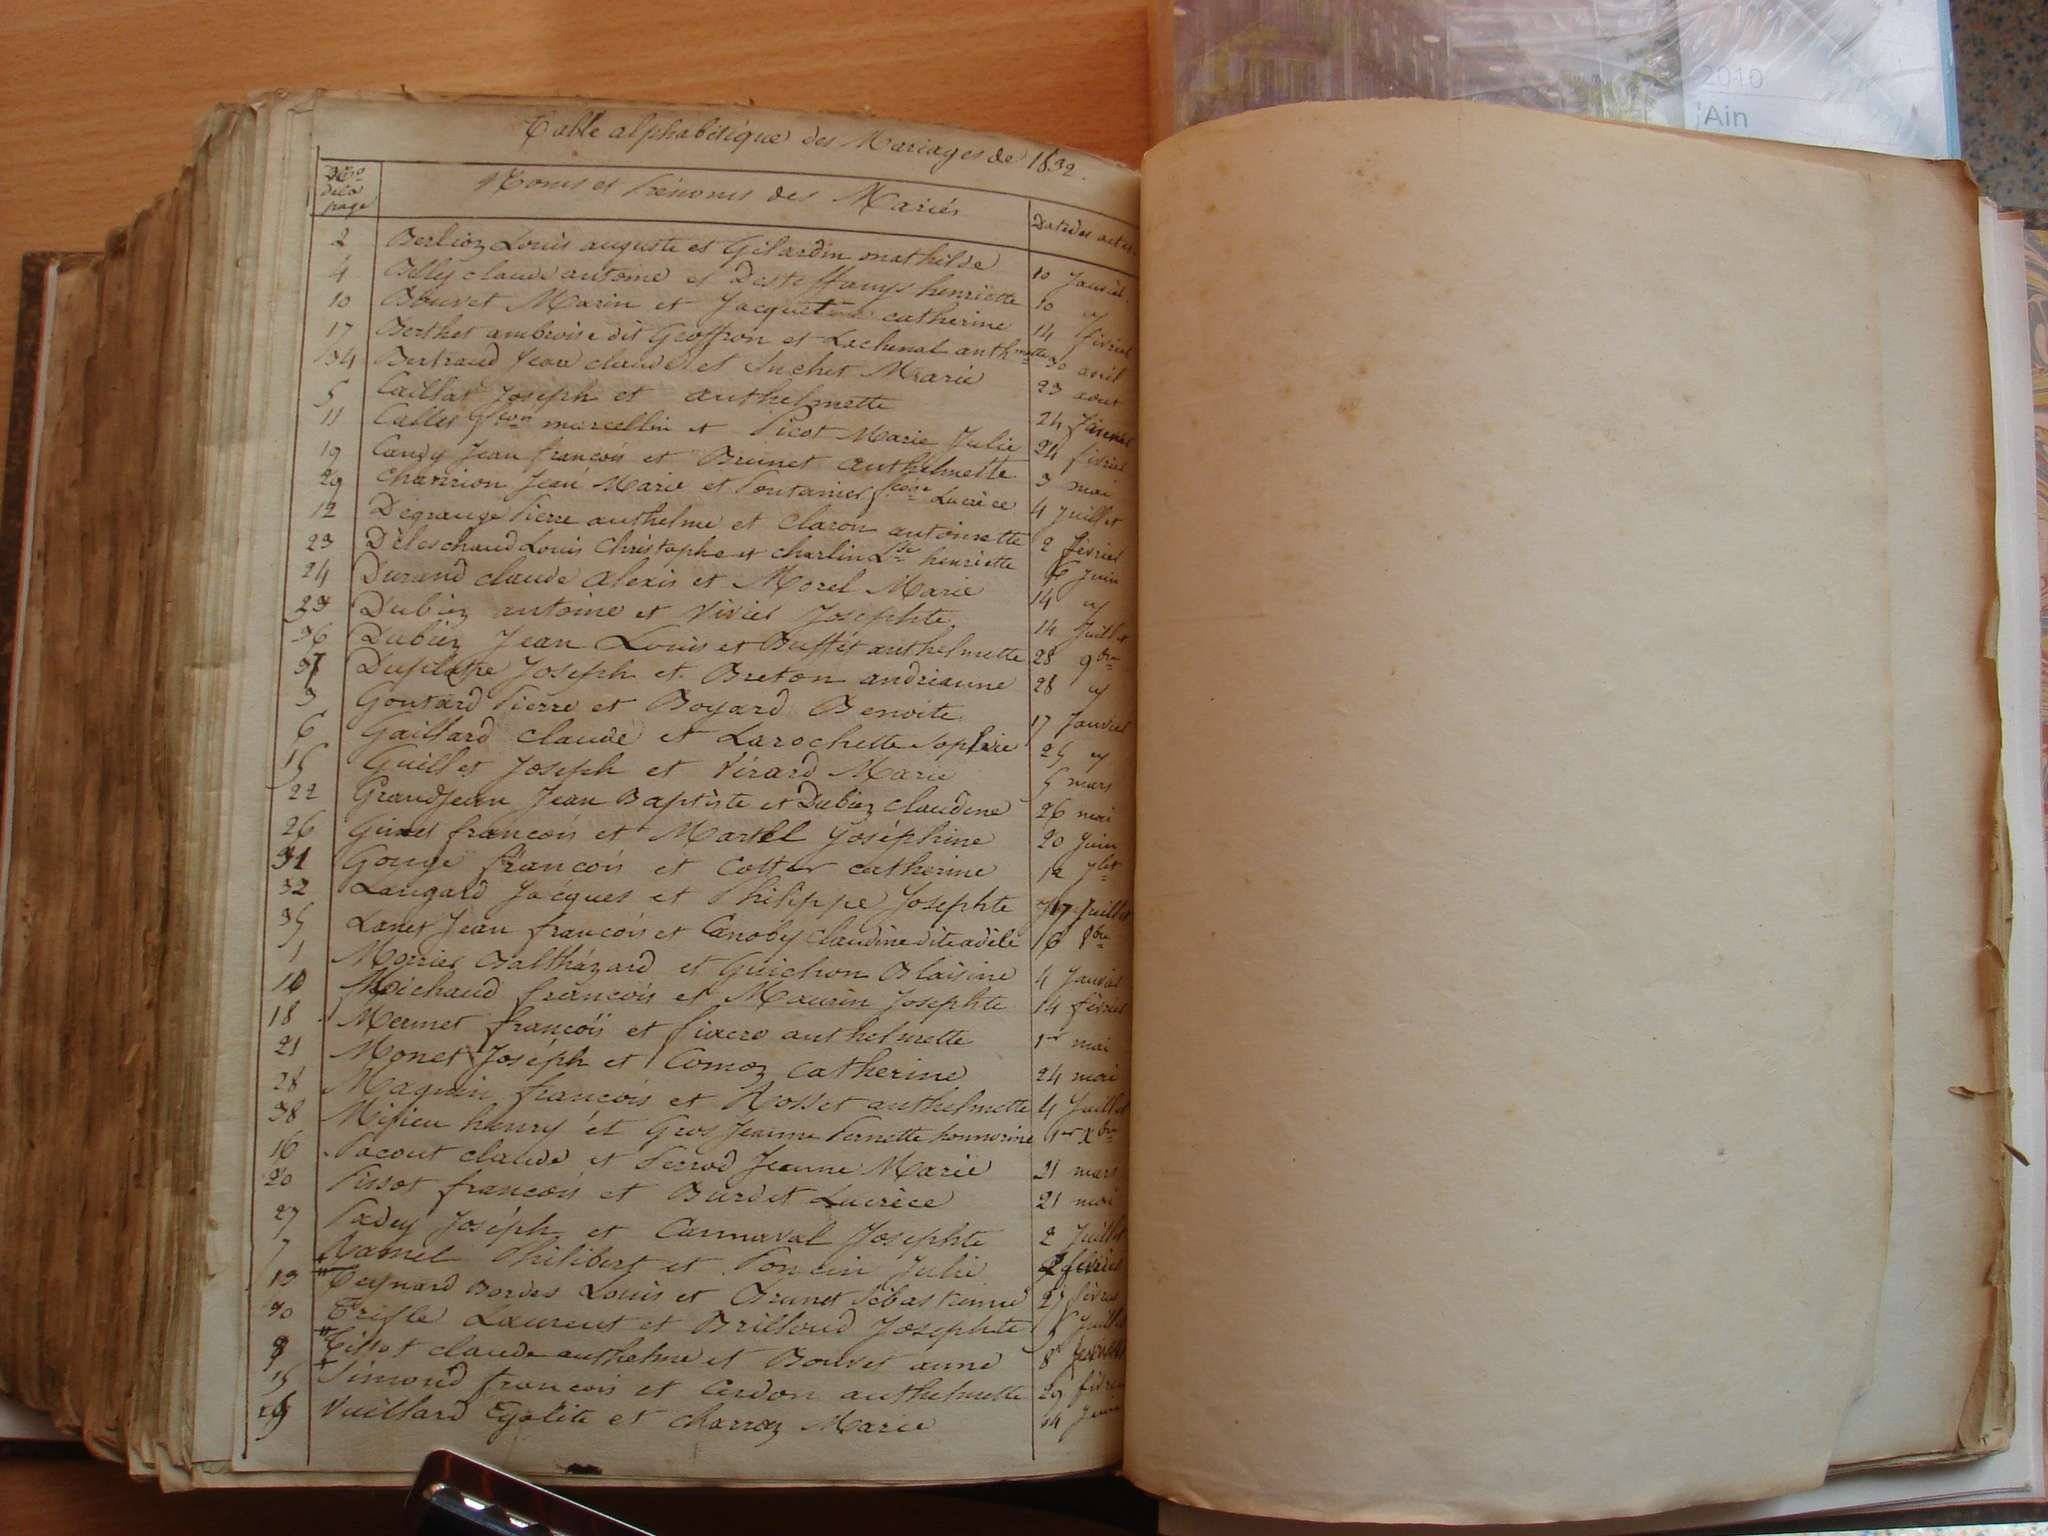 2010
Ain
Table alphabétique des Mariages de 1832.
Nos de la page
Noms et Prénoms des Mariés
Date des actes
2 Berlioz Louis auguste et Gilardin mathilde 10 Janvier
4 Billy claude antoine et Desteffanys henriette 10 "
10 Bouvet Marin et Jacquet catherine 14 février
17 Berthet ambroise dit Geoffron et Lachenal anthmette 30 avril
34 Bertrand Jean claude et Suchet Marie 23 aout
5 Caillat Joseph et anthelmette 24 Janvier
11 Callet marcellin et Picot Marie Julie 24 février
19 Candy Jean françois et Brunet anthelmette 3 mai
29 Charirion Jean Marie et Fontanier Lucrèce 4 Juillet
12 Degrange Pierre anthelme et Claron antoinette 2 février
23 Deleschaud Louis Christophe et charlin henriette Juin
24 Durand claude alexis et Morel Marie 14 "
Dubiez antoine et Vivier Josephte 14 Juillet
36 Dubiez Jean Louis et Buffet anthelmette 28 9bre
37 Duplatre Joseph et Breton andrianne 28 "
3 Goutard Pierre et Boyard Benoite 17 Janvier
6 Gaillard claude et Larochette sophie 25 "
15 Guillet Joseph et Vérard Marie 5 mars
22 Grandjean Jean Baptiste et Dubiez claudine 26 mai
26 Ginet françois et Martel Joséphine 20 Juin
31 Gouge françois et Cotter catherine 12 Jlet
32 Laugard Jacques et Philippe Josephte 17 Juillet
35 Lanet Jean françois et Canoby claudine dite adèle 16 8bre
1 Monier Balthazard et Guichon Blaisine 4 Janvier
10 Michaud françois et Maurin Josephte 14 février
18 Mermet françois et fiacre anthelmette 1er mai
21 Monet Joséph et Comoz catherine 24 mai
28 Magnin françois et Rosset anthelmette 4 Juillet
38 Mifieu henry et Gros Jeanne Pernette honnorine 1er Xbre
16 Pacout claude et Perrod Jeanne Marie 21 mars
20 Pissot françois et Burdet Lucrèce 21 mai
27 Padey Joséph et Cannaval Josephte 2 Juillet
7 Ramel Philibert et Poncin Julie février
13 Teynard Bordes Louis et Brunet sébastienne 27 février
30 Trifle Laurent et Brilloud Josephte Juillet
Tissot claude anthelme et Bouvet anne 8 février
15 Simond françois et Cardon anthelmette 29 février
Vuillard Egalite et charraz Marie 14 Juin